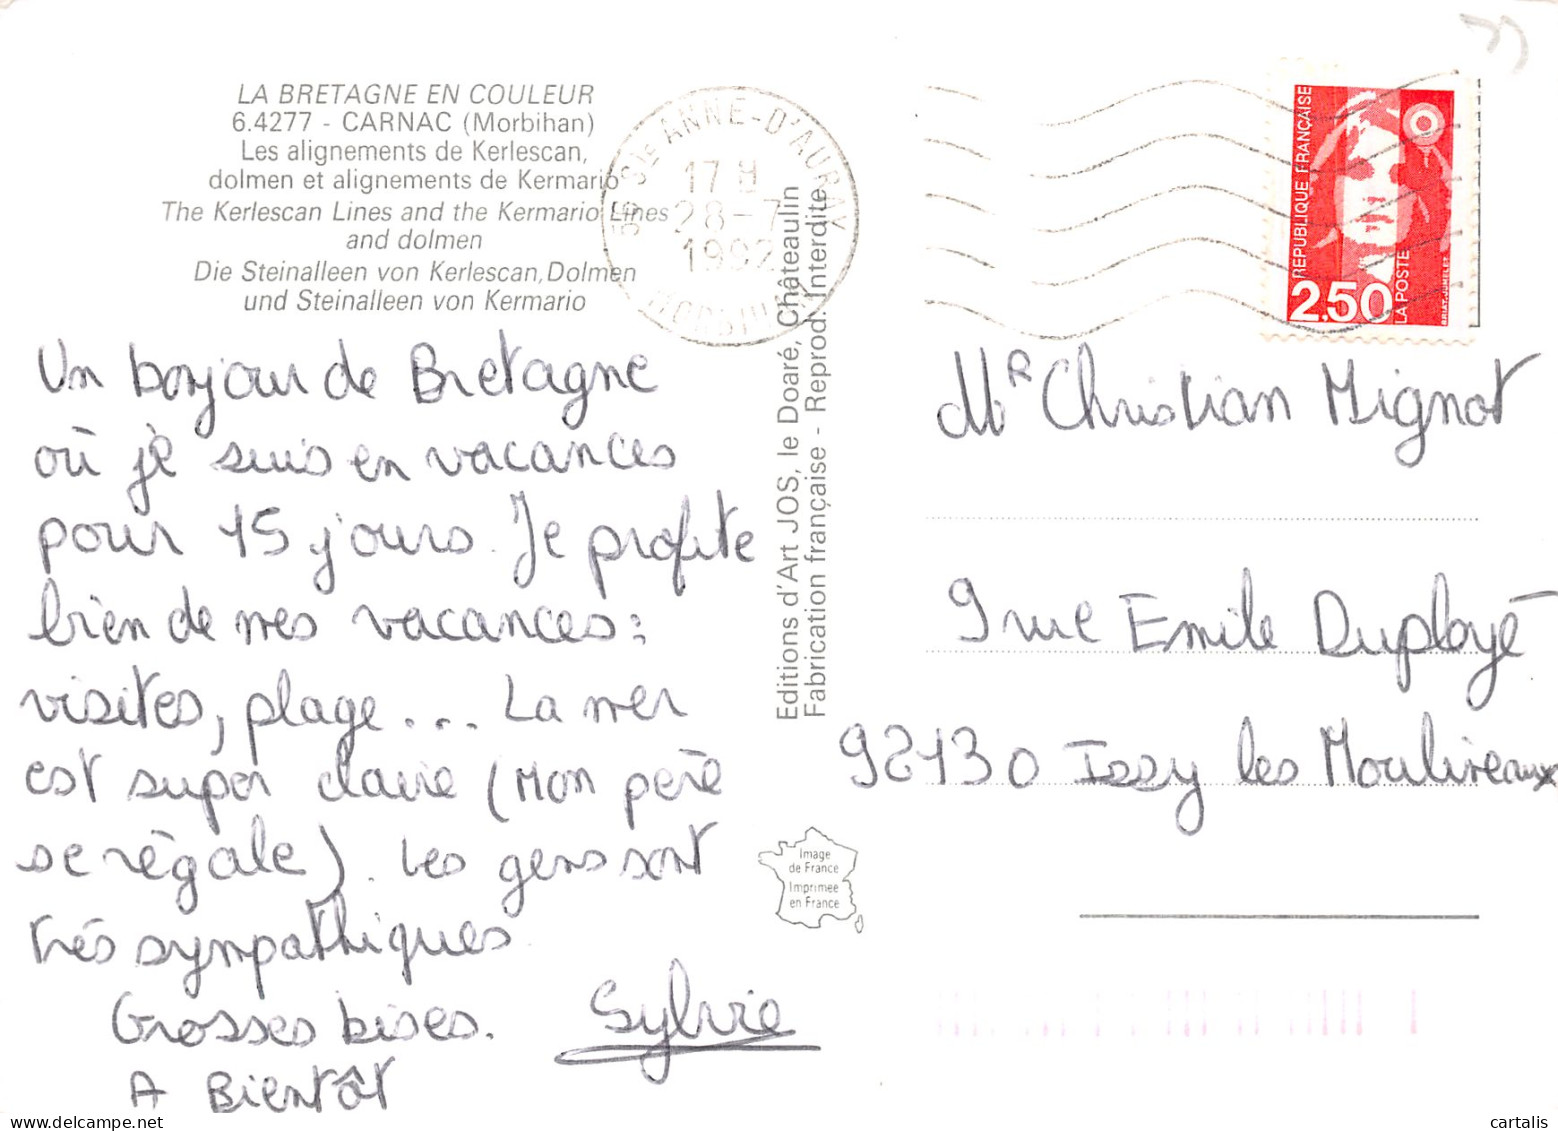 LA BRETAGNE EN COULEUR
6.4277 - CARNAC (Morbihan)
Les alignements de Kerlescan,
dolmen et alignements de Kermario
The Kerlescan Lines and the Kermario Lines
and dolmen
Die Steinalleen von Kerlescan, Dolmen
und Steinalleen von Kermario
56 Ste ANNE-D'AURAY
17 H
28-7
1992
MORBIHAN
REPUBLIQUE FRANÇAISE
2,50
LA POSTE
BRIAT-JUMELET
Un bonjour de Bretagne
où je suis en vacances
pour 15 jours. Je profite
bien de mes vacances :
visites, plage... La mer
est super claire (Mon père
se régale). Les gens sont
très sympathiques
Grosses bises.
A Bientôt
Sylvie
Editions d'Art JOS, le Doaré, Châteaulin
Fabrication française - Reprod. Interdite
Image
de France
Imprimée
en France
Mr Christian Mignot
9 rue Emile Duployé
92130 Issy les Moulineaux
cartalis